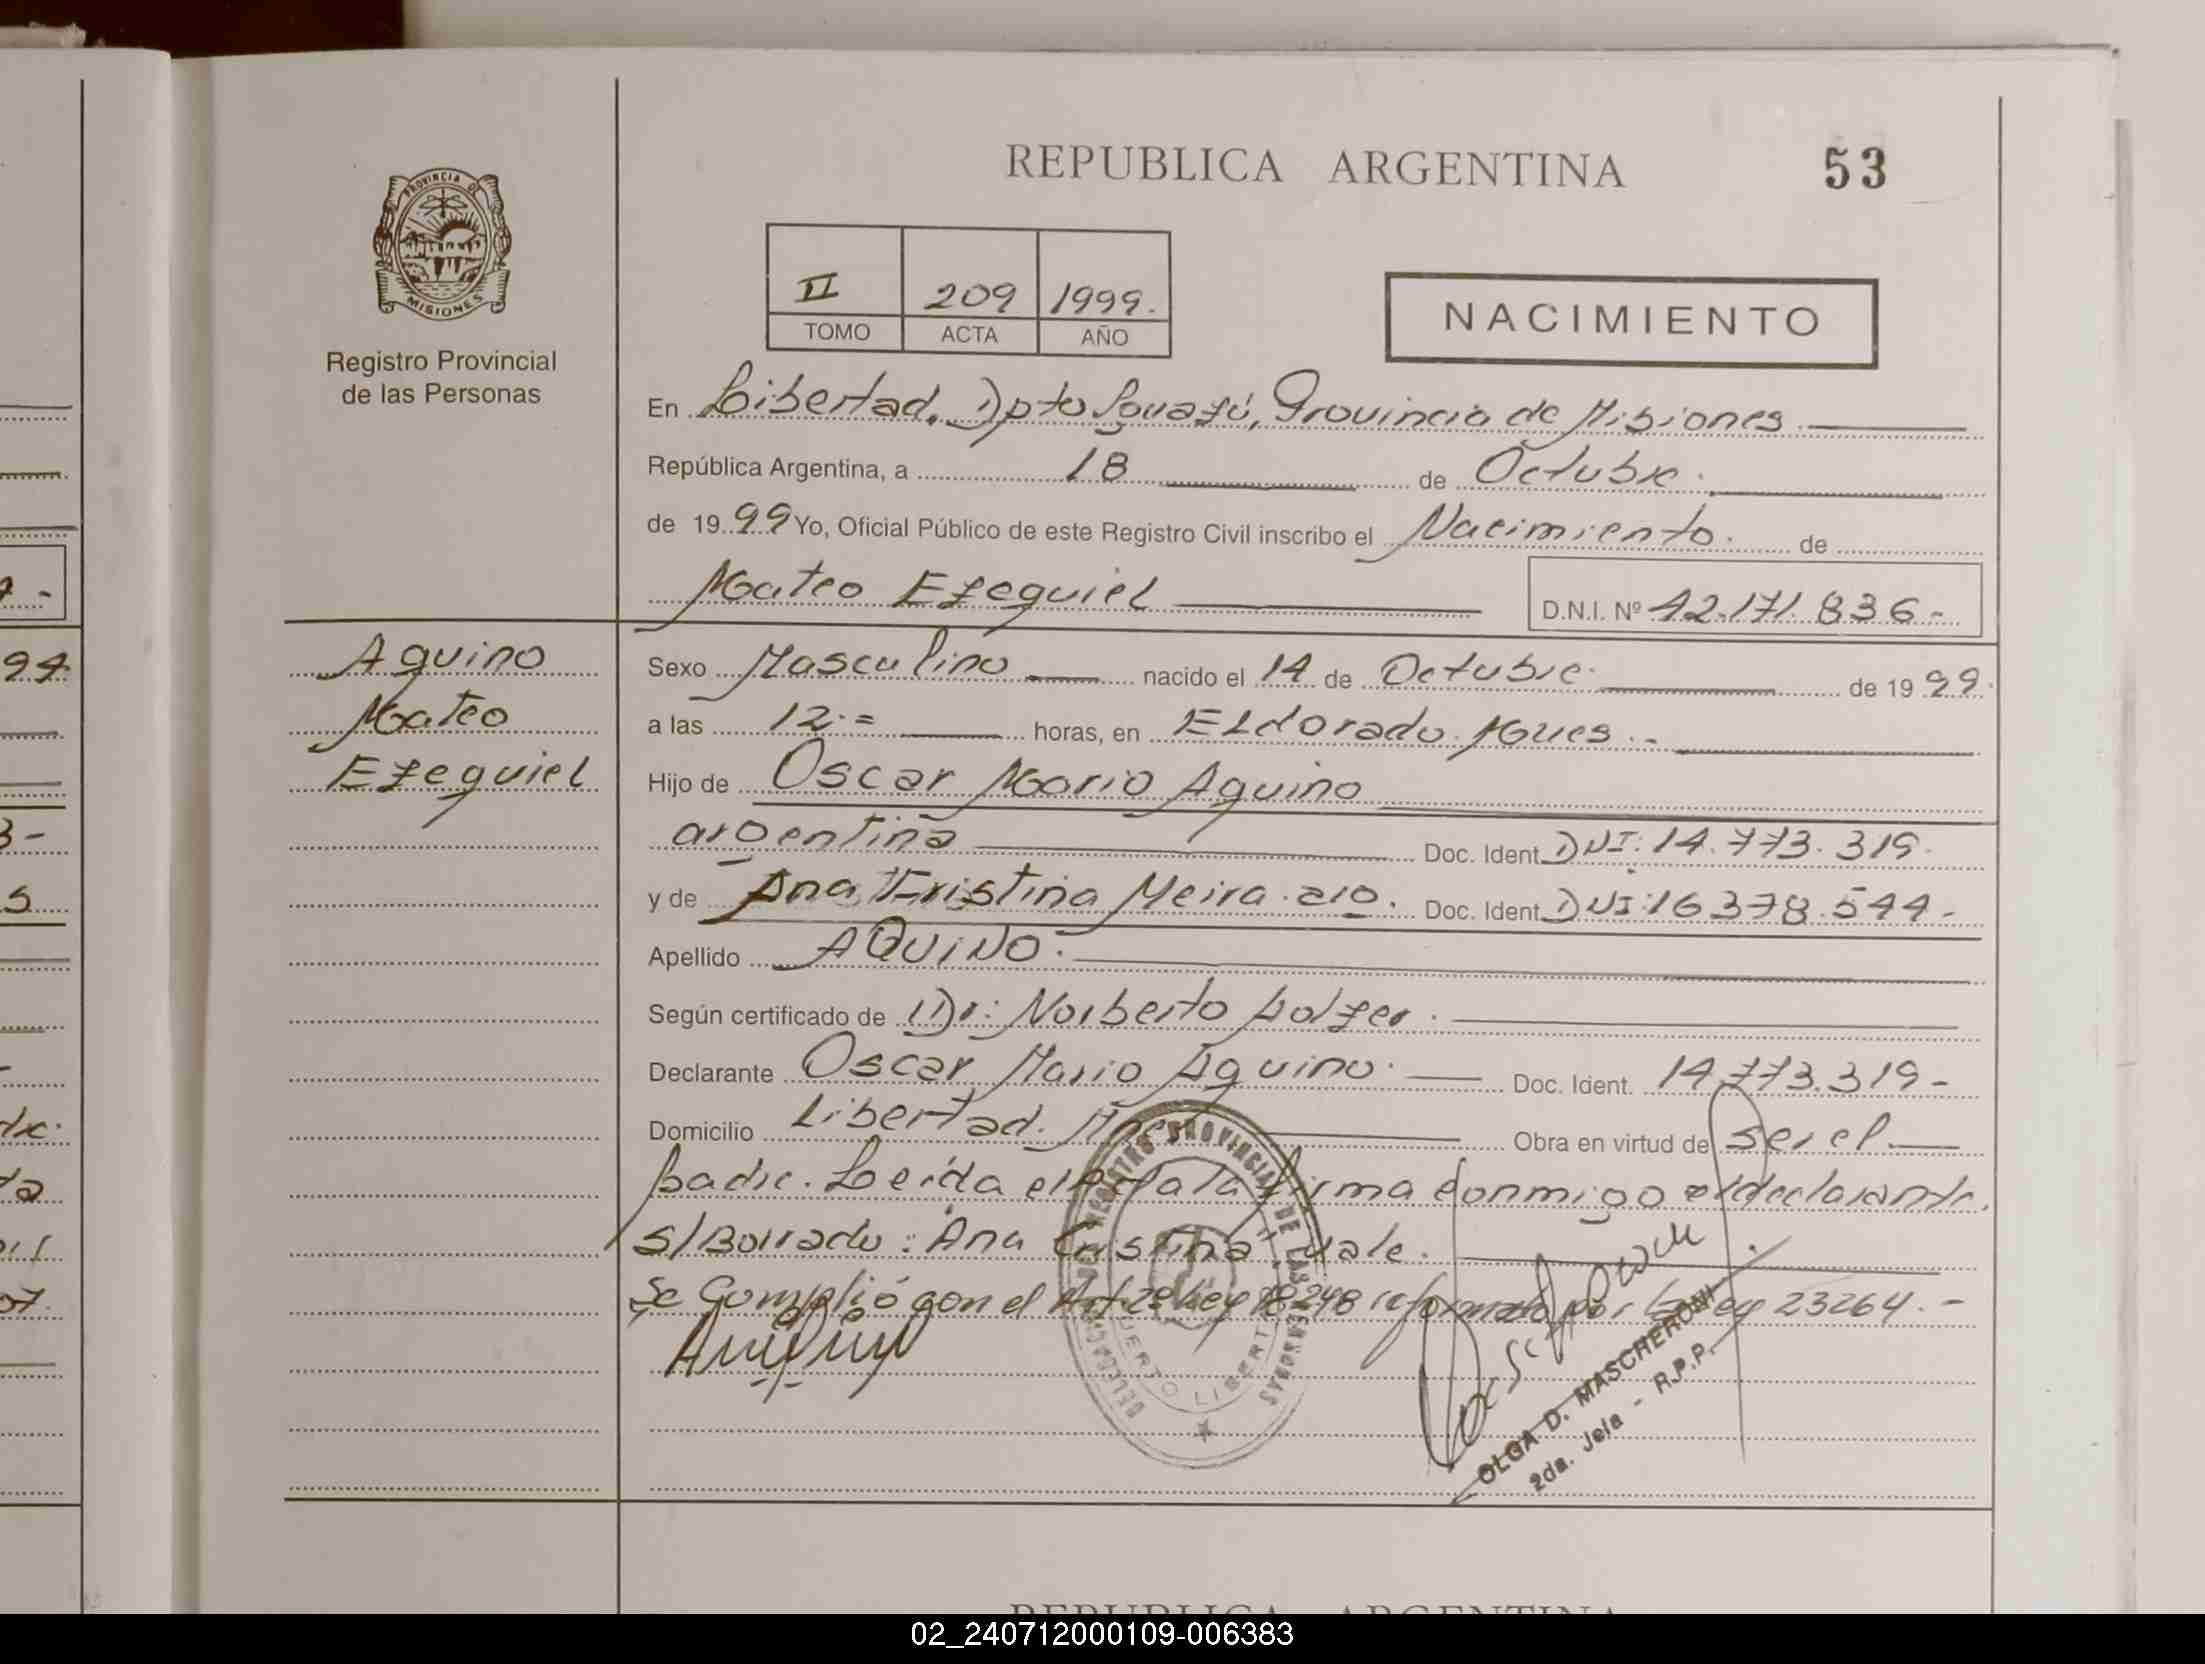 PROVINCIA DE
MISIONES
Registro Provincial
de las Personas
REPUBLICA ARGENTINA 53
II 209 1999.
TOMO ACTA AÑO
NACIMIENTO
En Libertad. Dpto Iguazú, Provincia de Misiones.
República Argentina, a 18 de Octubre.
de 1999 Yo, Oficial Público de este Registro Civil inscribo el Nacimiento. de
Mateo Ezequiel D.N.I. Nº 42.171.836-
Aquino
Mateo
Ezequiel
Sexo Masculino nacido el 14 de Octubre. de 1999.
a las 12.= horas, en Eldorado. Mnes.-
Hijo de Oscar Mario Aquino
argentina Doc. Ident DNI: 14.773.319.
y de Ana Cristina Meira. Doc. Ident DNI: 16378.544-
Apellido AQUINO.
Según certificado de Dr: Norberto
Declarante Oscar Mario Aquino. Doc. Ident. 14.773.319-
Domicilio Libertad. Mnes Obra en virtud de ser el
padre. Leída el Acta la firma conmigo el declarante.
s/Borrado: "Ana Cristina" Vale.
Se Cumplió con el Art 2º Ley 18248 reformato por la Ley 23264.-
DELEGACION REGISTRO PROVINCIAL DE LAS PERSONAS
PUERTO LIBERTAD
OLGA D. MASCHERONI
2da. Jefa - R.P.P.
REPUBLICA ARGENTINA
02_240712000109-006383